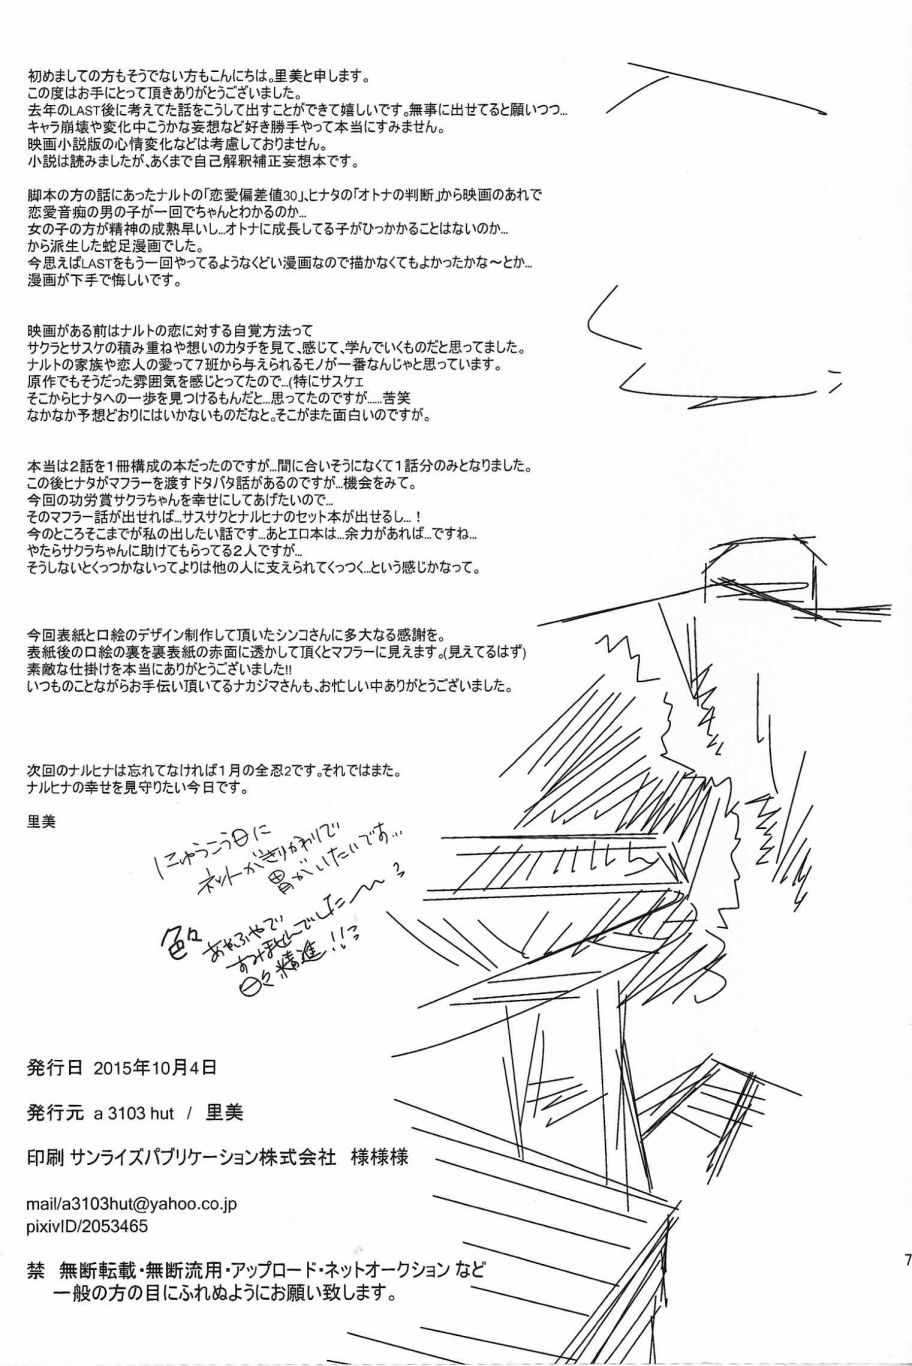 初めましての方もそうでない方もこんにちは。里美と申します。
この度はお手にとって頂きありがとうございました。
去年のLAST後に考えてた話をこうして出すことができて嬉しいです。無事に出せてると願いつつ…
キャラ崩壊や変化中こうかな妄想など好き勝手やって本当にすみません。
映画小説版の心情変化などは考慮しておりません。
小説は読みましたが、あくまで自己解釈補正妄想本です。
脚本の方の話にあったナルトの「恋愛偏差値30」、ヒナタの「オトナの判断」から映画のあれで
恋愛音痴の男の子が一回でちゃんとわかるのか…
女の子の方が精神の成熟早いし…オトナに成長してる子がひっかかることはないのか…
から派生した蛇足漫画でした。
今思えばLASTをもう一回やってるようなくどい漫画なので描かなくてもよかったかな～とか…
漫画が下手で悔しいです。
映画がある前はナルトの恋に対する自覚方法って
サクラとサスケの積み重ねや想いのカタチを見て、感じて、学んでいくものだと思ってました。
ナルトの家族や恋人の愛って7班から与えられるモノが一番なんじゃと思っています。
原作でもそうだった雰囲気を感じとってたので…(特にサスケェ
そこからヒナタへの一歩を見つけるもんだと…思ってたのですが……苦笑
なかなか予想どおりにはいかないものだなと。そこがまた面白いのですが。
本当は2話を1冊構成の本だったのですが…間に合いそうになくて1話分のみとなりました。
この後ヒナタがマフラーを渡すドタバタ話があるのですが…機会をみて。
今回の功労賞サクラちゃんを幸せにしてあげたいので…
そのマフラー話が出せれば…サスサクとナルヒナのセット本が出せるし…！
今のところそこまでが私の出したい話です…あとエロ本は…余力があれば…ですね…
やたらサクラちゃんに助けてもらってる2人ですが…
そうしないとくっつかないってよりは他の人に支えられてくっつく…という感じかなって。
今回表紙と口絵のデザイン制作して頂いたシンコさんに多大なる感謝を。
表紙後の口絵の裏を裏表紙の赤面に透かして頂くとマフラーに見えます。(見えてるはず)
素敵な仕掛けを本当にありがとうございました!!
いつものことながらお手伝い頂いてるナカジマさんも、お忙しい中ありがとうございました。
次回のナルヒナは忘れてなければ1月の全忍2です。それではまた。
ナルヒナの幸せを見守りたい今日です。
里美
にゅうこう日に
ネットがきりかわりで
胃がいたいです…
色々
あやふやで
すみませんでした〜〜っ
日々精進!!っ
発行日 2015年10月4日
発行元 a 3103 hut / 里美
印刷 サンライズパブリケーション株式会社 様様様
mail/a3103hut@yahoo.co.jp
pixivID/2053465
禁 無断転載・無断流用・アップロード・ネットオークション など
一般の方の目にふれぬようにお願い致します。
7